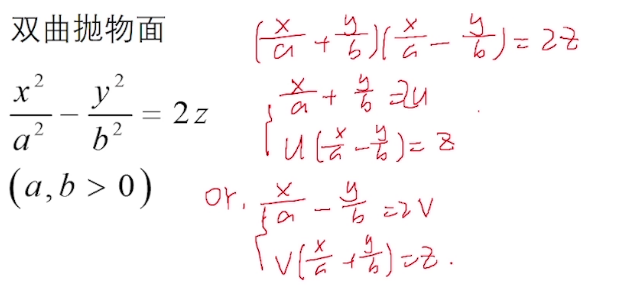 双曲抛物面
x²/a² − y²/b² = 2z
(a, b > 0)
(x/a + y/b)(x/a − y/b) = 2z
{ x/a + y/b = 2u
u(x/a − y/b) = z
or. { x/a − y/b = 2v
v(x/a + y/b) = z.